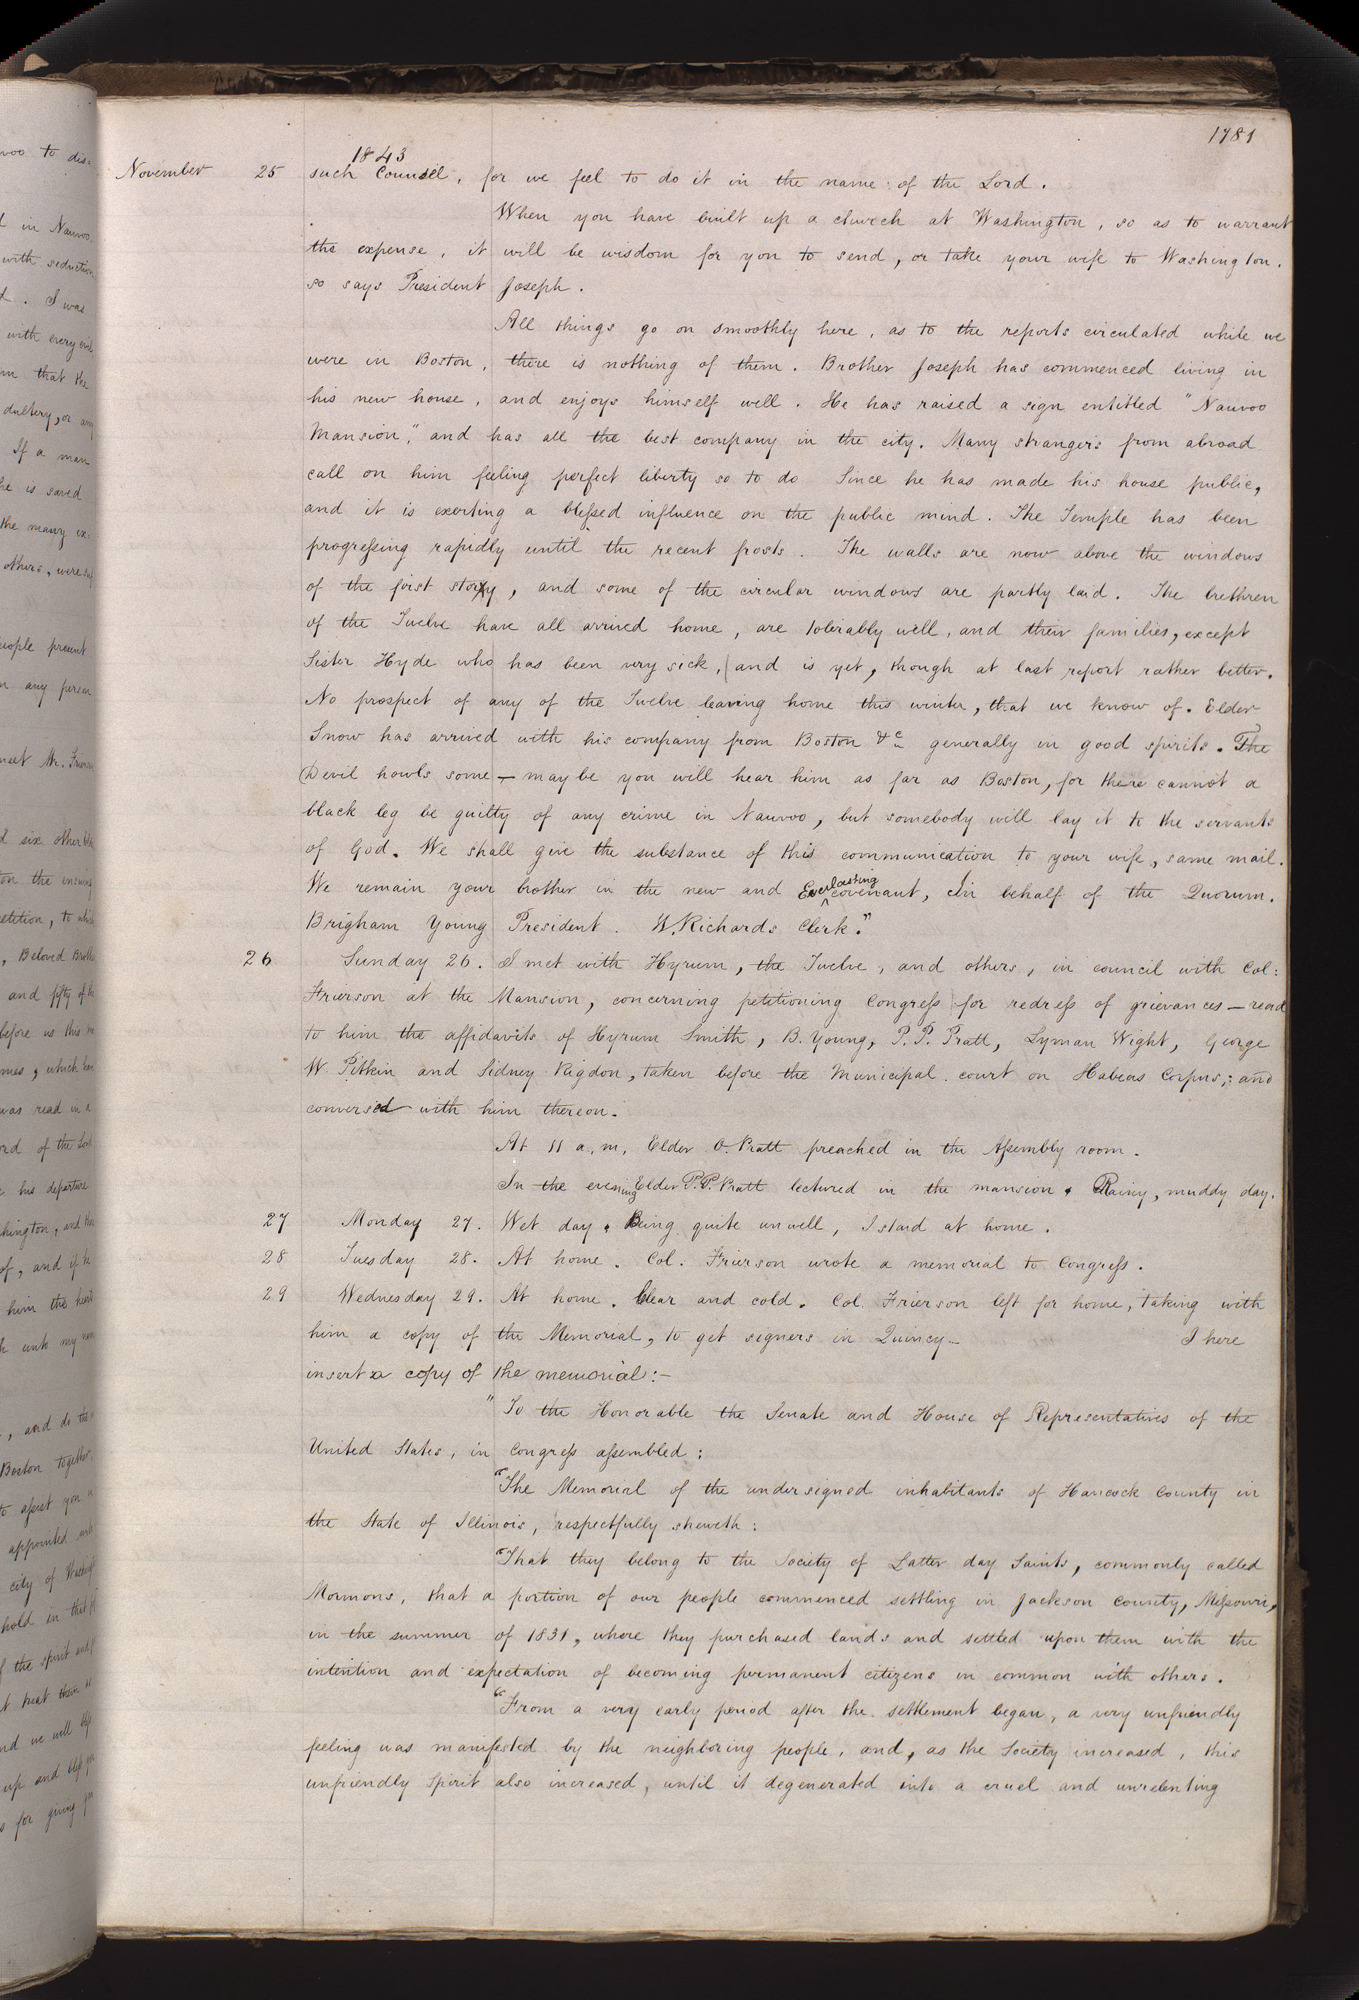 1781
1843
November 25 such Council, for we feel to do it in the name of the Lord.
When you have built up a church at Washington, so as to warrant
the expense, it will be wisdom for you to send, or take your wife to Washington.
so says President Joseph.
All things go on smoothly here, as to the reports circulated while we
were in Boston, there is nothing of them. Brother Joseph has commenced living in
his new house, and enjoys himself well. He has raised a sign entitled "Nauvoo
Mansion," and has all the best company in the city. Many strangers from abroad
call on him feeling perfect liberty so to do Since he has made his house public,
and it is exerting a blessed influence on the public mind. The Temple has been
progressing rapidly until the recent frosts. The walls are now above the windows
of the first story, and some of the circular windows are partly laid. The brethren
of the Twelve have all arrived home, are tolerably well, and their families, except
Sister Hyde who has been very sick, and is yet, though at last report rather better.
No prospect of any of the Twelve leaving home this winter, that we know of. Elder
Snow has arrived with his company from Boston &c generally in good spirits. The
Devil howls some — may be you will hear him as far as Boston, for there cannot a
black leg be guilty of any crime in Nauvoo, but somebody will lay it to the servants
of God. We shall give the substance of this communication to your wife, same mail.
We remain your brother in the new and Everlasting covenant, in behalf of the Quorum.
Brigham Young President. W. Richards Clerk."
26 Sunday 26. I met with Hyrum, the Twelve, and others, in council with Col:
Frierson at the Mansion, concerning petitioning Congress for redress of grievances — read
to him the affidavits of Hyrum Smith, B. Young, P. P. Pratt, Lyman Wight, George
W Pitkin and Sidney Rigdon, taken before the Municipal court on Habeas Corpus; and
conversed with him thereon.
At 11 a, m, Elder O. Pratt preached in the Assembly room.
In the evening Elder P. P. Pratt lectured in the mansion. Rainy, muddy day.
27 Monday 27. Wet day. Being quite unwell, I staid at home.
28 Tuesday 28. At home. Col. Frierson wrote a memorial to Congress.
29 Wednesday 29. At home. Clear and cold. Col. Frierson left for home, taking with
him a copy of the Memorial, to get signers in Quincy — I here
insert a copy of the memorial:—
"To the Honorable the Senate and House of Representatives of the
United States, in Congress assembled:
"The Memorial of the undersigned inhabitants of Hancock County in
the State of Illinois, respectfully sheweth:
"That they belong to the Society of Latter day Saints, commonly called
Mormons, that a portion of our people commenced settling in Jackson County, Missouri,
in the summer of 1831, where they purchased lands and settled upon them with the
intention and expectation of becoming permanent citizens in common with others.
"From a very early period after the settlement began, a very unfriendly
feeling was manifested by the neighboring people, and, as the Society increased, this
unfriendly Spirit also increased, until it degenerated into a cruel and unrelenting